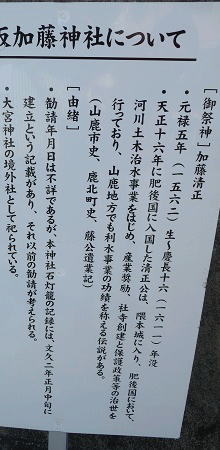 坂加藤神社について
［御祭神］加藤清正
・元禄五年（一五六二）生～慶長十六（一六一一）年没
・天正十六年に肥後国に入国した清正公は、隈本城に入り、肥後国において、
河川土木治水事業をはじめ、産業奨励、社寺創建と保護政策等の治世を
行っており、山鹿地方でも利水事業の功績を称える伝説がある。
（山鹿市史、鹿北町史、藤公遺業記）
［由緒］
・勧請年月日は不詳であるが、本神社石灯籠の記録には、文久二年正月中旬に
建立という記載があり、それ以前の勧請が考えられる。
・大宮神社の境外社として祀られている。